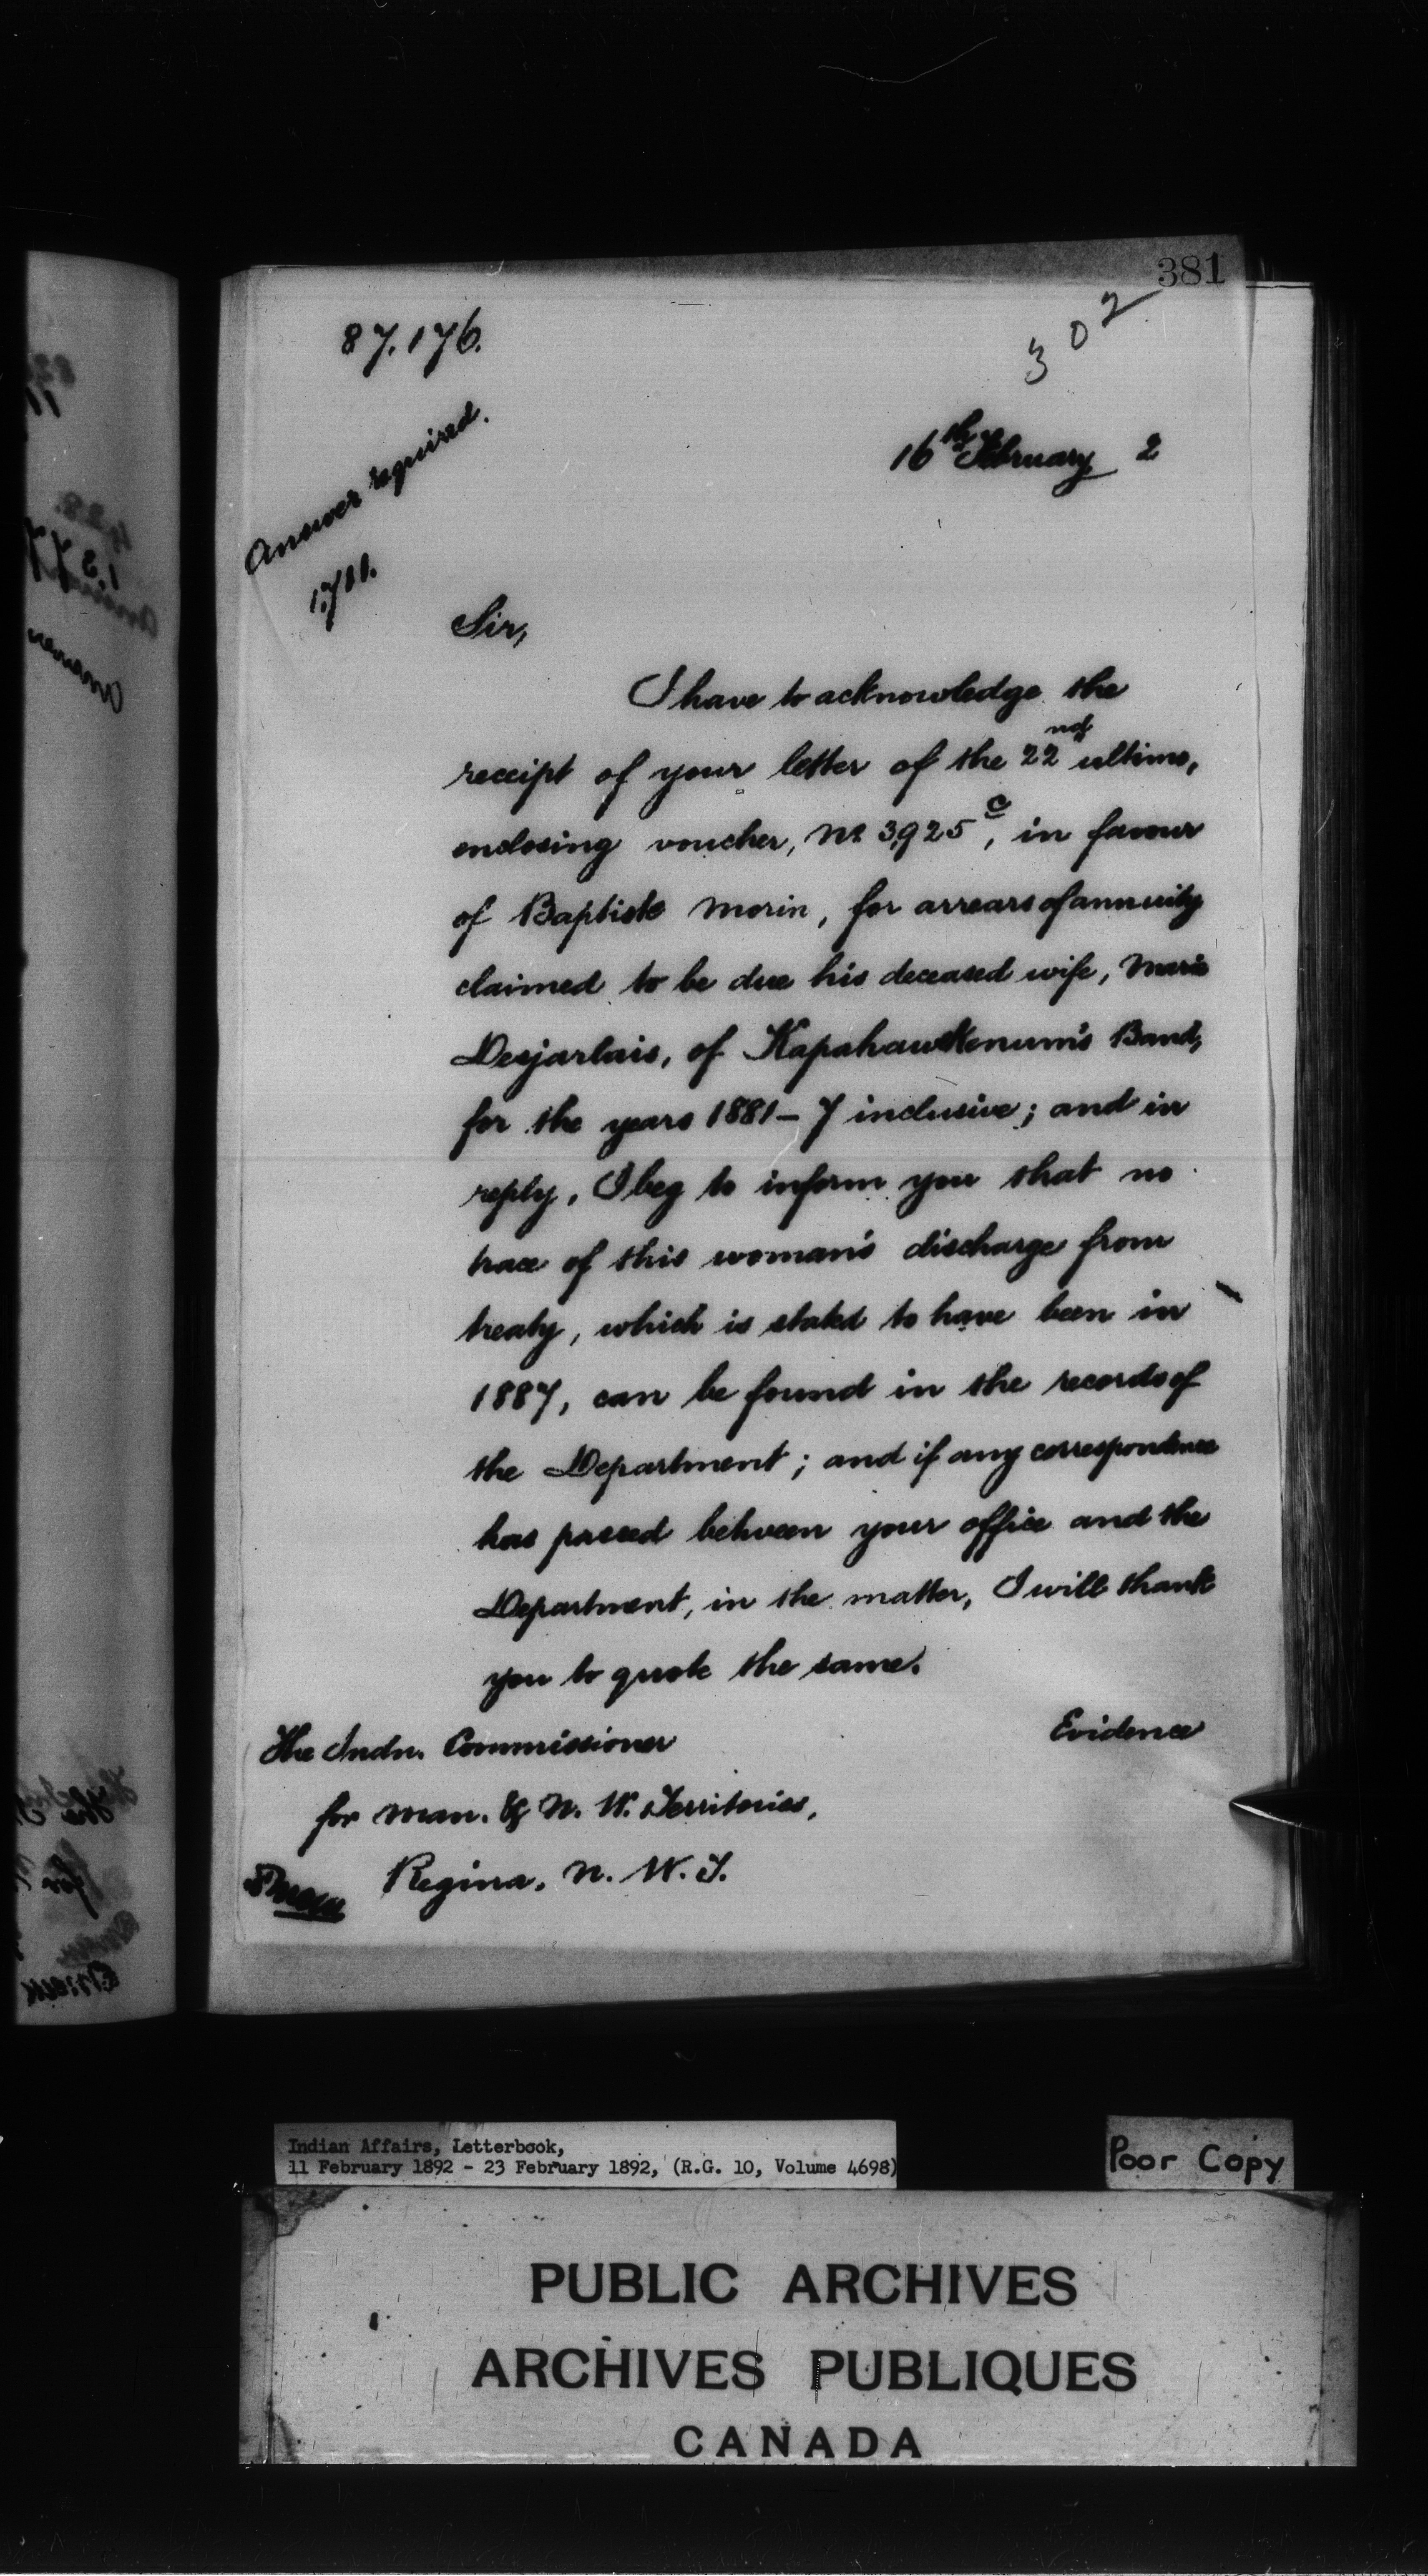 381
302
87.176.
Answer required.
1,711.
16th February 2
Sir,
I have to acknowledge the
receipt of your letter of the 22nd ultimo,
enclosing voucher, No. 3,925 c, in favour
of Baptiste Morin, for arrears of annuity
claimed to be due his deceased wife, Marie
Desjarlais, of Kapahawkenum's Band,
for the years 1881-7 inclusive; and in
reply, I beg to inform you that no
trace of this woman's discharge from
treaty, which is stated to have been in
1887, can be found in the records of
the Department; and if any correspondence
has passed between your office and the
Department, in the matter, I will thank
you to quote the same.
Evidence
The Indn. Commissioner
for Man. & N. W. Territories,
Regina, N. W. T.
Indian Affairs, Letterbook,
11 February 1892 - 23 February 1892, (R.G. 10, Volume 4698)
Poor Copy
PUBLIC ARCHIVES
ARCHIVES PUBLIQUES
CANADA